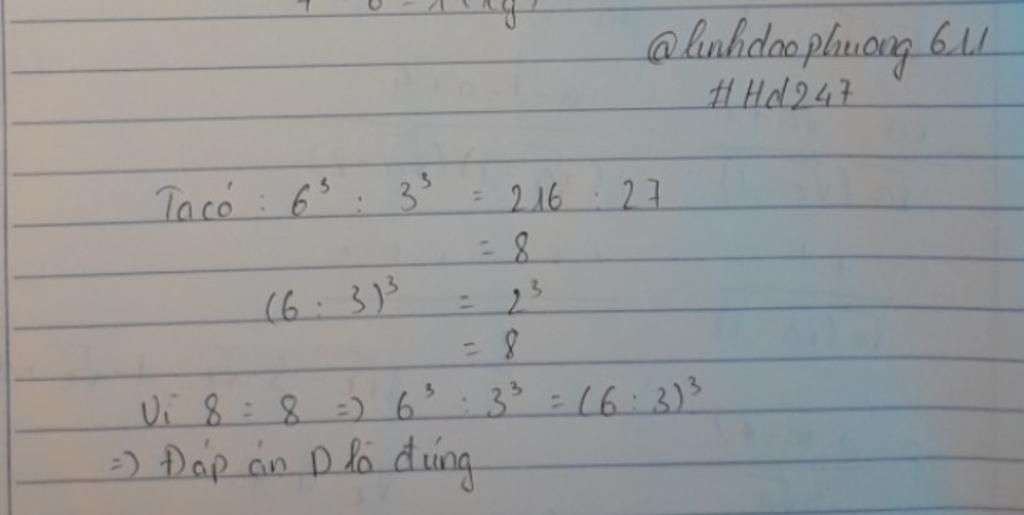 @linhdaophuong611
#Hd247
Ta có : 6³ : 3³ = 216 : 27
= 8
(6 : 3)³ = 2³
= 8
Vì 8 = 8 => 6³ : 3³ = (6 : 3)³
=> Đáp án D là đúng